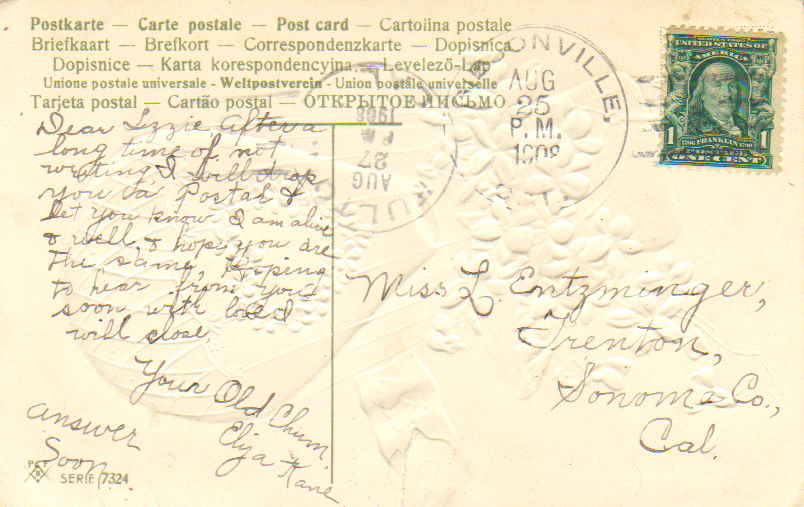 Postkarte — Carte postale — Post card — Cartolina postale
Briefkaart — Brefkort — Correspondenzkarte — Dopisnica
Dopisnice — Karta korespondencyjna — Levelező-Lap
Unione postale universale - Weltpostverein - Union postale universelle
Tarjeta postal — Cartão postal — ОТКРЫТОЕ ПИСЬМО
Dear Izzie after a
long time of not
writing I will drop
you a Postal &
let you know I am alive
& well, & hope you are
the same, Hoping
to hear from you
soon with love I
will close.
Your Old Chum,
Eliza Kane
answer
Soon.
SERIE 7324
SONVILLE,
AUG
25
P.M.
1908
FULTON
AUG
27
1908
UNITED STATES OF
AMERICA
1 1
FRANKLIN
ONE CENT
Miss L. Entzminger,
Trenton,
Sonoma Co.,
Cal.